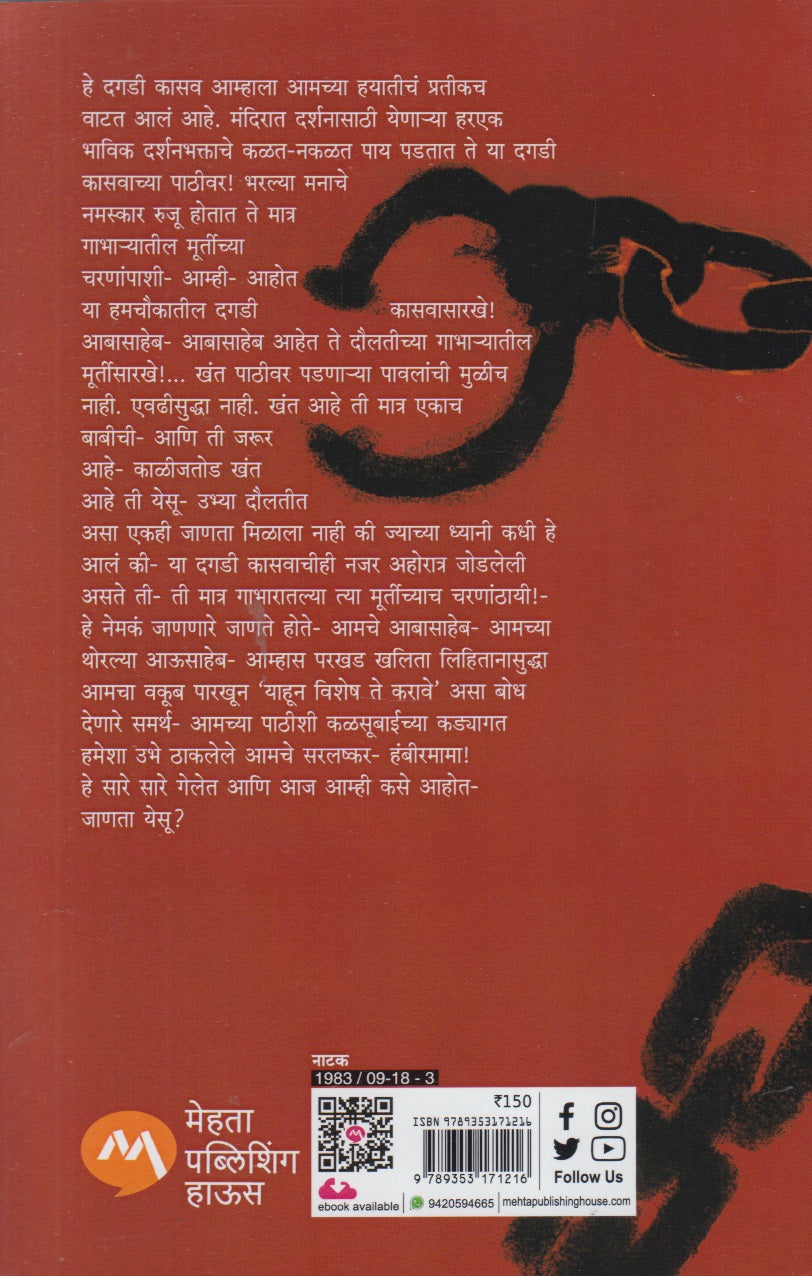 हे दगडी कासव आम्हाला आमच्या हयातीचं प्रतीकच
वाटत आलं आहे. मंदिरात दर्शनासाठी येणाऱ्या हरएक
भाविक दर्शनभक्ताचे कळत-नकळत पाय पडतात ते या दगडी
कासवाच्या पाठीवर! भरल्या मनाचे
नमस्कार रुजू होतात ते मात्र
गाभाऱ्यातील मूर्तीच्या
चरणांपाशी- आम्ही- आहोत
या हमचौकातील दगडी कासवासारखे!
आबासाहेब- आबासाहेब आहेत ते दौलतीच्या गाभाऱ्यातील
मूर्तीसारखे!... खंत पाठीवर पडणाऱ्या पावलांची मुळीच
नाही. एवढीसुद्धा नाही. खंत आहे ती मात्र एकाच
बाबीची- आणि ती जरूर
आहे- काळीजतोड खंत
आहे ती येसू- उभ्या दौलतीत
असा एकही जाणता मिळाला नाही की ज्याच्या ध्यानी कधी हे
आलं की- या दगडी कासवाचीही नजर अहोरात्र जोडलेली
असते ती- ती मात्र गाभारातल्या त्या मूर्तीच्याच चरणांठायी!-
हे नेमकं जाणणारे जाणते होते- आमचे आबासाहेब- आमच्या
थोरल्या आऊसाहेब- आम्हास परखड खलिता लिहितानासुद्धा
आमचा वकूब पारखून ‘याहून विशेष ते करावे’ असा बोध
देणारे समर्थ- आमच्या पाठीशी कळसूबाईच्या कड्यागत
हमेशा उभे ठाकलेले आमचे सरलष्कर- हंबीरमामा!
हे सारे सारे गेलेत आणि आज आम्ही कसे आहोत-
जाणता येसू?
नाटक
1983 / 09-18 - 3
मेहता
पब्लिशिंग
हाऊस
₹150
ISBN 9789353171216
9 789353 171216
Follow Us
ebook available
9420594665
mehtapublishinghouse.com